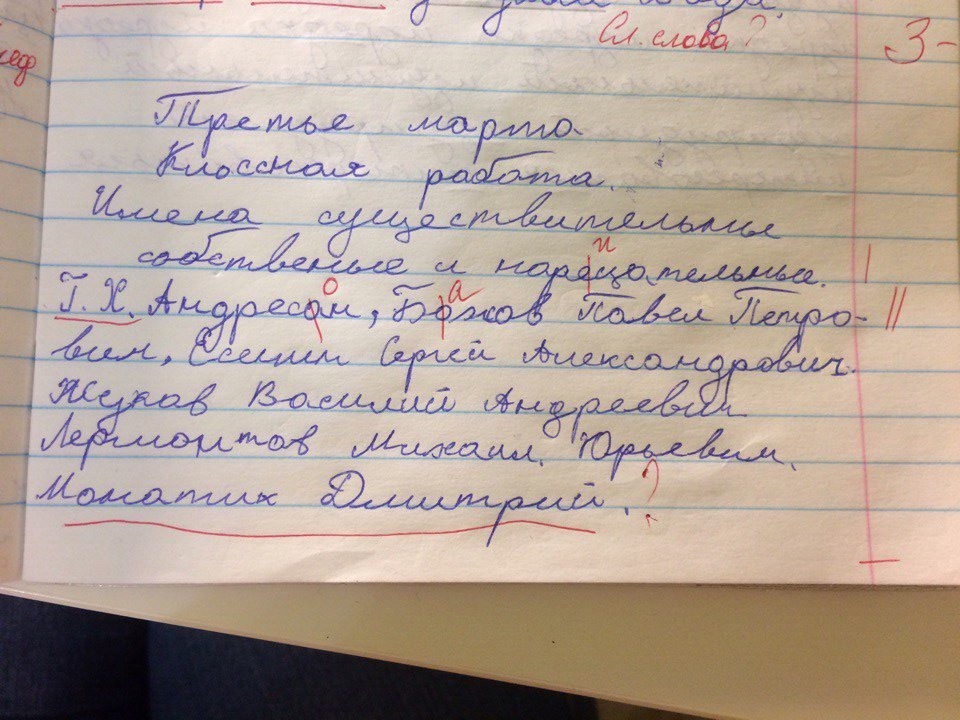 Сл. слова? 3-
Третье марта
Классная работа.
Имена существительные
собственые и нарецательные. и |
Г. Х. Андресан, о Божов а Павел Петро- ||
вич, Есенин Сергей Александрович.
Жуков Василий Андреевич
Лермонтов Михаил. Юрьевич.
Монатик Дмитрий. ?